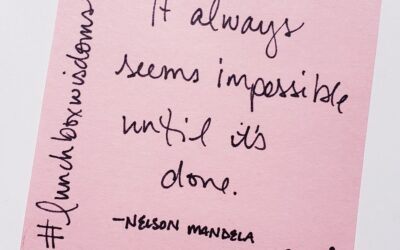 It always
seems impossible
until it's
done.
-NELSON MANDELA
#lunchboxwisdoms